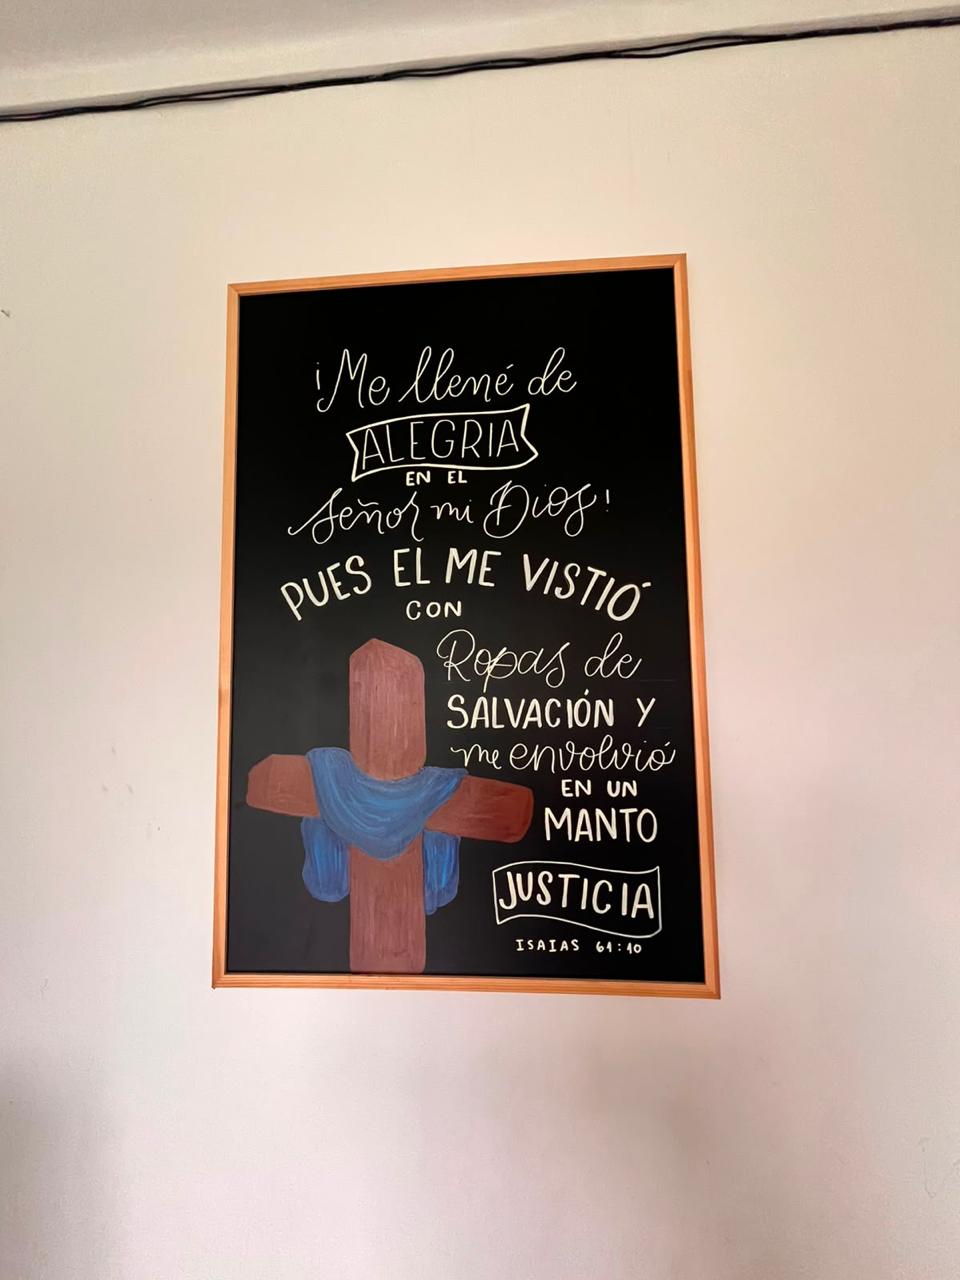 ¡Me llené de
ALEGRIA
EN EL
Señor mi Dios!
PUES EL ME VISTIÓ
CON
Ropas de
SALVACIÓN Y
me envolvió
EN UN
MANTO
JUSTICIA
ISAIAS 61:10